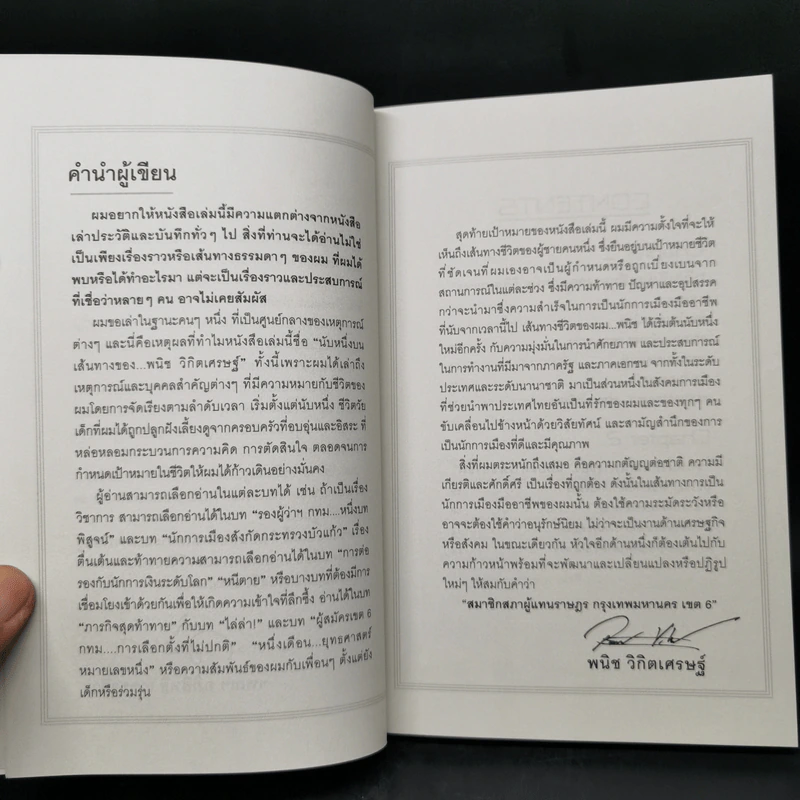 คำนำผู้เขียน
ผมอยากให้หนังสือเล่มนี้มีความแตกต่างจากหนังสือ
เล่าประวัติและบันทึกทั่วๆ ไป สิ่งที่ท่านจะได้อ่านไม่ใช่
เป็นเพียงเรื่องราวหรือเส้นทางธรรมดาๆ ของผม ที่ผมได้
พบหรือได้ทำอะไรมา แต่จะเป็นเรื่องราวและประสบการณ์
ที่เชื่อว่าหลายๆ คน อาจไม่เคยสัมผัส
ผมขอเล่าในฐานะคนๆ หนึ่ง ที่เป็นศูนย์กลางของเหตุการณ์
ต่างๆ และนี่คือเหตุผลที่ทำไมหนังสือเล่มนี้ชื่อ “นับหนึ่งบน
เส้นทางของ...พนิช วิกิตเศรษฐ์” ทั้งนี้เพราะผมได้เล่าถึง
เหตุการณ์และบุคคลสำคัญต่างๆ ที่มีความหมายกับชีวิตของ
ผมโดยการจัดเรียงตามลำดับเวลา เริ่มตั้งแต่นับหนึ่ง ชีวิตวัย
เด็กที่ผมได้ถูกปลูกฝังเลี้ยงดูจากครอบครัวที่อบอุ่นและอิสระ ที่
หล่อหลอมกระบวนการความคิด การตัดสินใจ ตลอดจนการ
กำหนดเป้าหมายในชีวิตให้ผมได้ก้าวเดินอย่างมั่นคง
ผู้อ่านสามารถเลือกอ่านในแต่ละบทได้ เช่น ถ้าเป็นเรื่อง
วิชาการ สามารถเลือกอ่านได้ในบท “รองผู้ว่าฯ กทม....หนึ่งบท
พิสูจน์” และบท “นักการเมืองสังกัดกระทรวงบัวแก้ว” เรื่อง
ตื่นเต้นและท้าทายความสามารถเลือกอ่านได้ในบท “การต่อ
รองกับนักการเงินระดับโลก” “หนีตาย” หรือบางบทที่ต้องมีการ
เชื่อมโยงเข้าด้วยกันเพื่อให้เกิดความเข้าใจที่ลึกซึ้ง อ่านได้ในบท
“ภารกิจสุดท้าทาย” กับบท “ไล่ล่า!” และบท “ผู้สมัครเขต 6
กทม....การเลือกตั้งที่ไม่ปกติ” “หนึ่งเดือน...ยุทธศาสตร์
หมายเลขหนึ่ง” หรือความสัมพันธ์ของผมกับเพื่อนๆ ตั้งแต่ยัง
เด็กหรือร่วมรุ่น
สุดท้ายเป้าหมายของหนังสือเล่มนี้ ผมมีความตั้งใจที่จะให้
เห็นถึงเส้นทางชีวิตของผู้ชายคนหนึ่ง ซึ่งยืนอยู่บนเป้าหมายชีวิต
ที่ชัดเจนที่ผมเองอาจเป็นผู้กำหนดหรือถูกเบี่ยงเบนจาก
สถานการณ์ในแต่ละช่วง ซึ่งมีความท้าทาย ปัญหาและอุปสรรค
กว่าจะนำมาซึ่งความสำเร็จในการเป็นนักการเมืองมืออาชีพ
ที่นับจากเวลานี้ไป เส้นทางชีวิตของผม...พนิช ได้เริ่มต้นนับหนึ่ง
ใหม่อีกครั้ง กับความมุ่งมั่นในการนำศักยภาพ และประสบการณ์
ในการทำงานที่มีมาจากภาครัฐ และภาคเอกชน จากทั้งในระดับ
ประเทศและระดับนานาชาติ มาเป็นส่วนหนึ่งในสังคมการเมือง
ที่ช่วยนำพาประเทศไทยอันเป็นที่รักของผมและของทุกๆ คน
ขับเคลื่อนไปข้างหน้าด้วยวิสัยทัศน์ และสามัญสำนึกของการ
เป็นนักการเมืองที่ดีและมีคุณภาพ
สิ่งที่ผมตระหนักถึงเสมอ คือความกตัญญูต่อชาติ ความมี
เกียรติและศักดิ์ศรี เป็นเรื่องที่ถูกต้อง ดังนั้นในเส้นทางการเป็น
นักการเมืองมืออาชีพของผมนั้น ต้องใช้ความระมัดระวังหรือ
อาจจะต้องใช้คำว่าอนุรักษ์นิยม ไม่ว่าจะเป็นงานด้านเศรษฐกิจ
หรือสังคม ในขณะเดียวกัน หัวใจอีกด้านหนึ่งก็ต้องเต้นไปกับ
ความก้าวหน้าพร้อมที่จะพัฒนาและเปลี่ยนแปลงหรือปฏิรูป
ใหม่ๆ ให้สมกับคำว่า
“สมาชิกสภาผู้แทนราษฎร กรุงเทพมหานคร เขต 6”
พนิช วิกิตเศรษฐ์